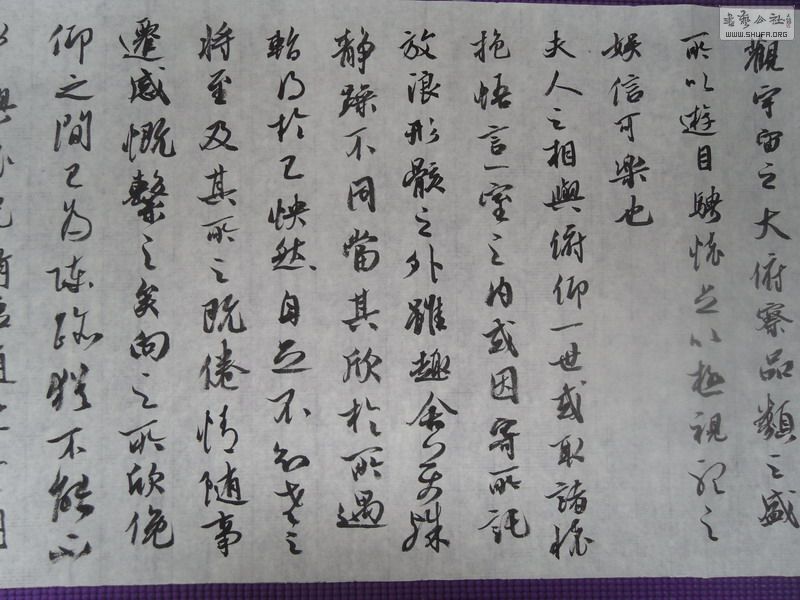 觀宇宙之大俯察品類之盛
所以遊目騁懷足以極視聽之
娛信可樂也
夫人之相與俯仰一世或取諸懷
抱悟言一室之內或因寄所託
放浪形骸之外雖趣舍萬殊
静躁不同當其欣於所遇
暫得於己怏然自足不知老之
將至及其所之既倦情随事
遷感慨繫之矣向之所欣俛
仰之間已為陳跡猶不能不
書藝公社
WWW.SHUFA.ORG